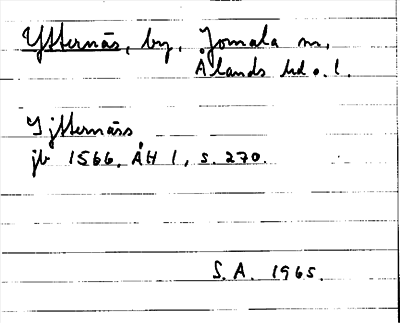 Ytternäs, by, Jomala sn,
Ålands hd o. l.
Yjtternäss
jb 1566. ÅH 1, s. 270.
S.A. 1965.